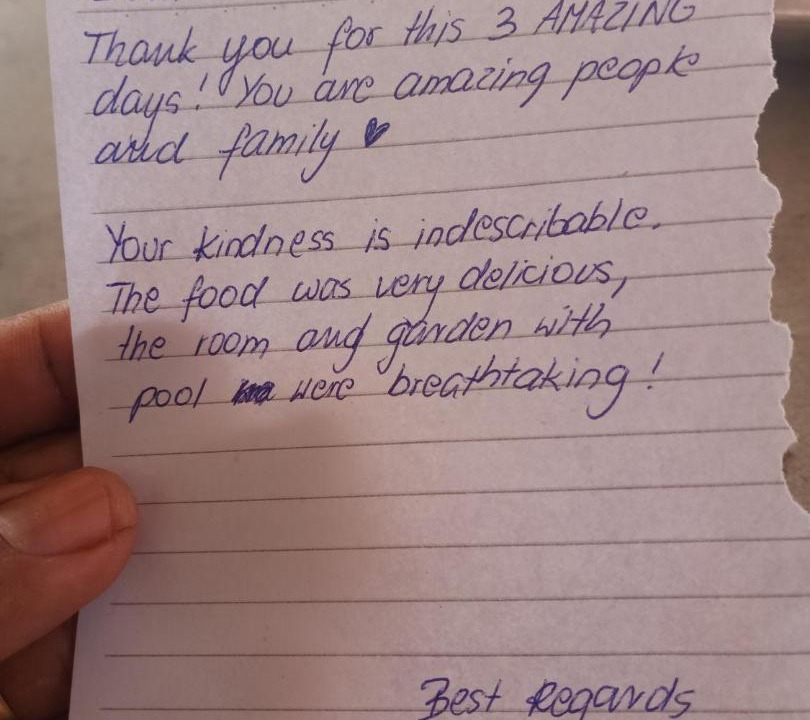 Thank you for this 3 AMAZING
days! You are amazing people
and family ♥
Your kindness is indescribable.
The food was very delicious,
the room and garden with
pool were breathtaking!
Best Regards